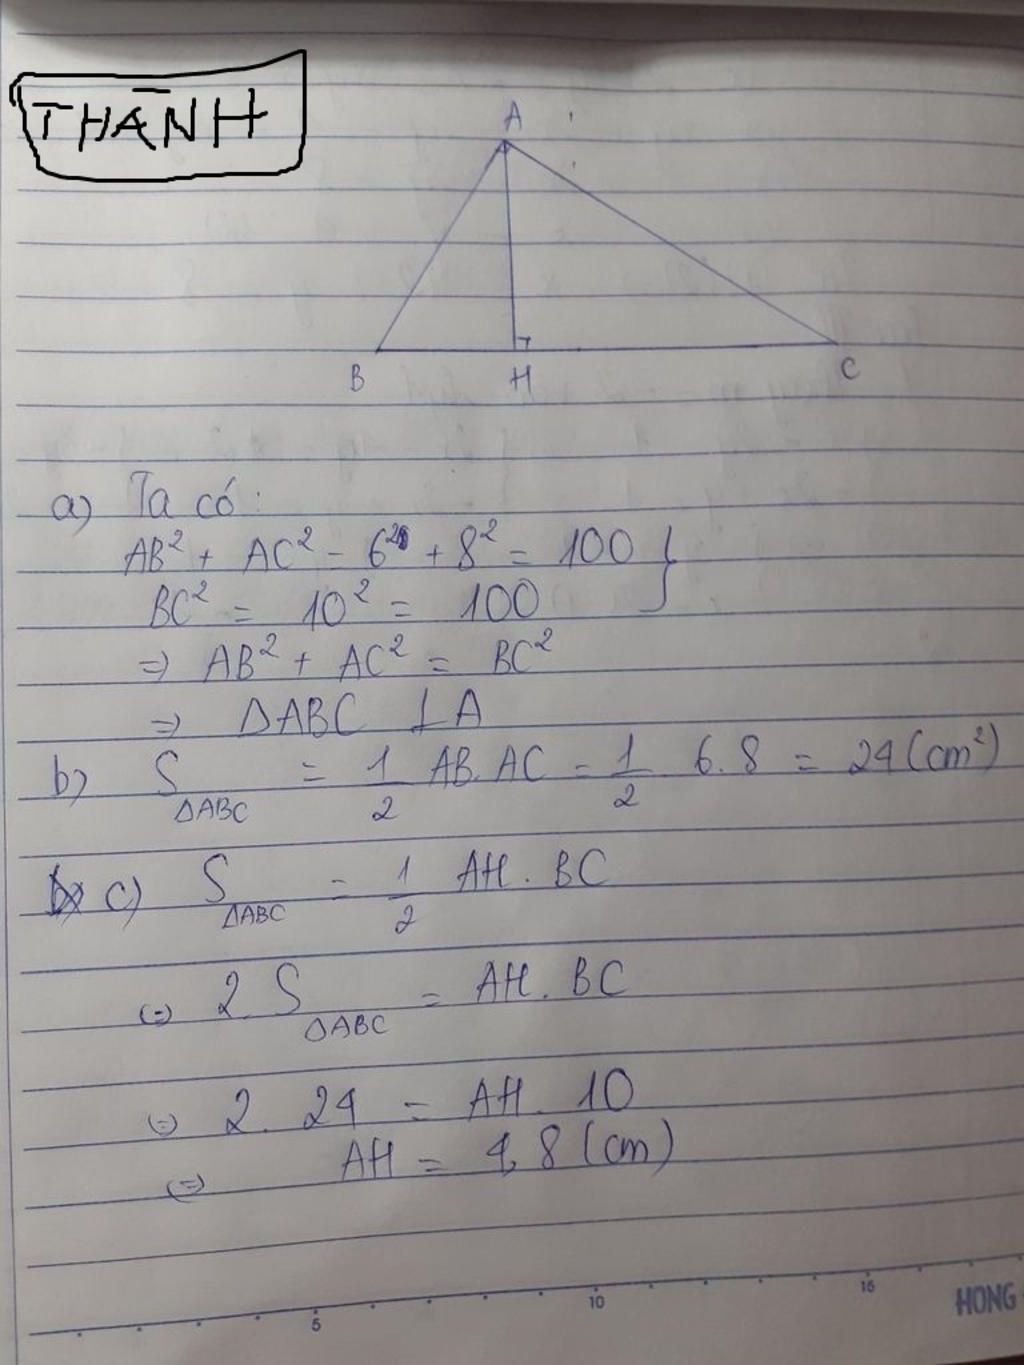 THANH
A
B H C
a) Ta có:
AB² + AC² = 6² + 8² = 100 }
BC² = 10² = 100
=> AB² + AC² = BC²
=> ΔABC ⊥ A
b) S ΔABC = 1/2 AB.AC = 1/2 6.8 = 24 (cm²)
c) S ΔABC = 1/2 AH.BC
(=) 2.S ΔABC = AH.BC
(=) 2.24 = AH.10
(=) AH = 4,8 (cm)
5 10 15 HONG